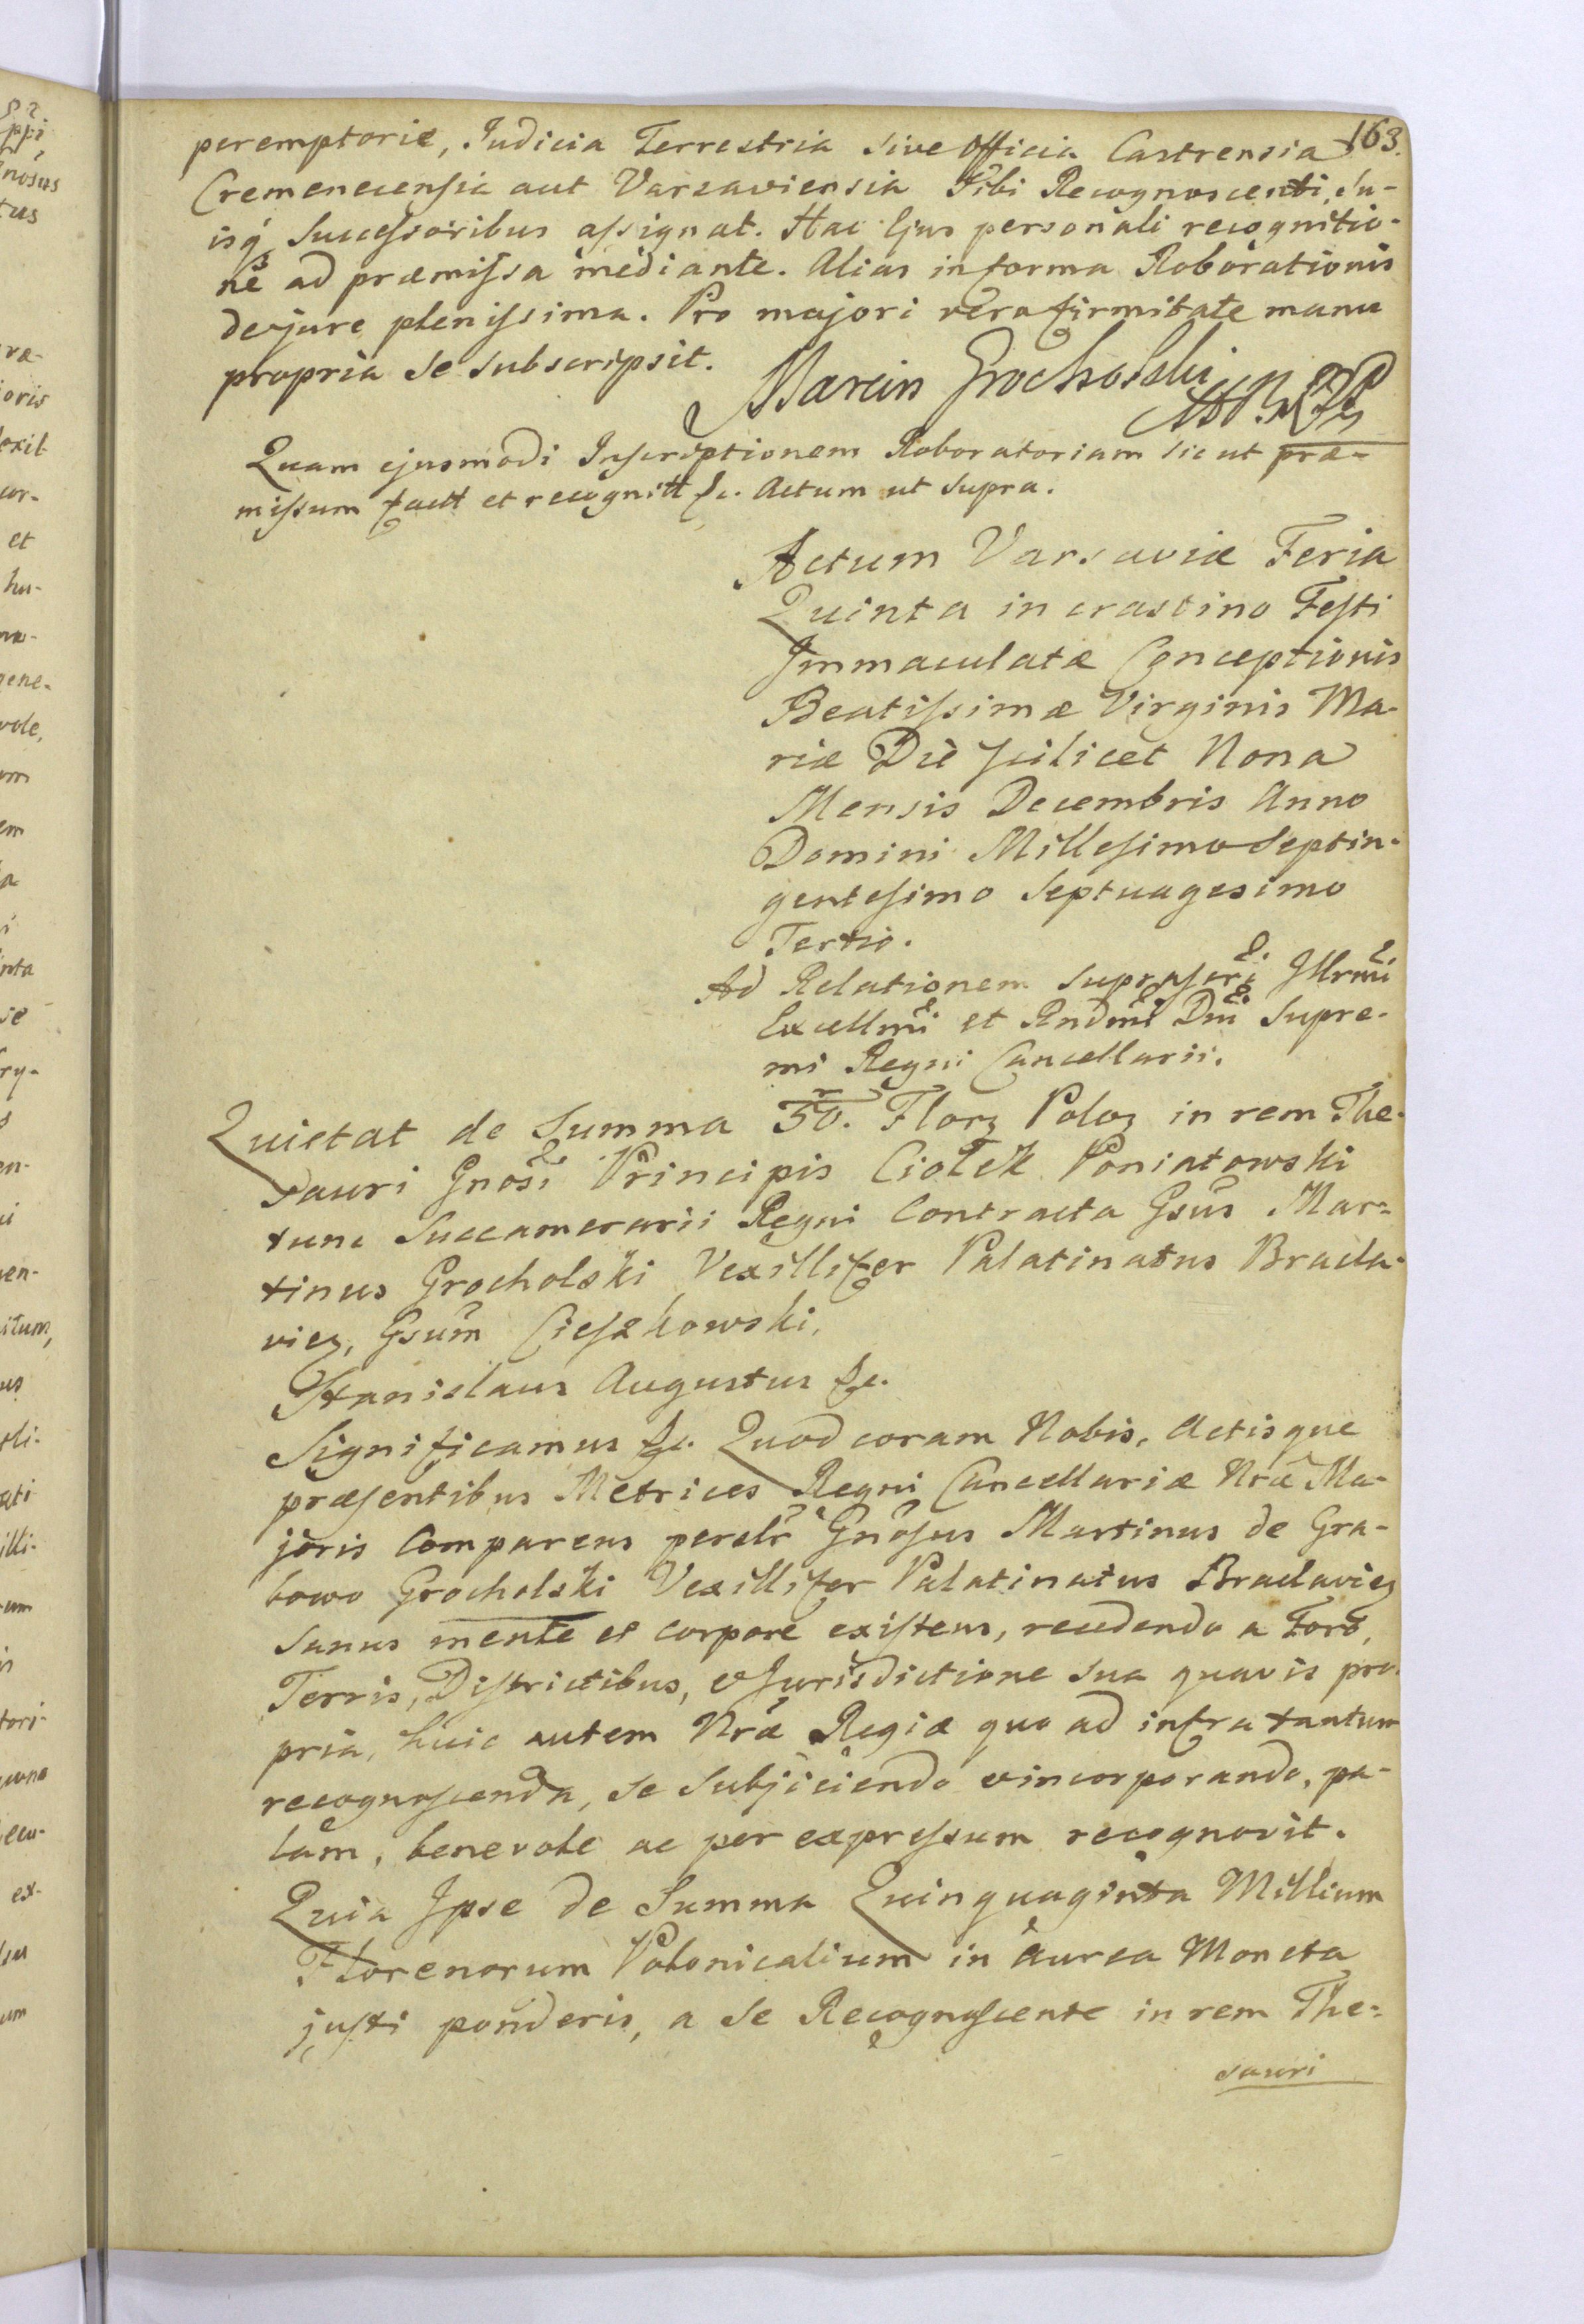 163.
peremptorie, Judicia Terrestria sive Officia Castrensia
Cremenecensia aut Varsaviensia Sibi Recognoscenti, Su-
isq́ Successoribus assignat. Hac Ejus personali recognitio-
ne ad præmissa mediante. Alias in forma Roborationis
de jure plenissima. Pro majori vero firmitate manu
propria se subscripsit. Marcin Grocholski
Quam ejusmodi Inscriptionem Roboratoriam sic ut præ-
missum factt et recognitt &c. Actum ut supra.
Actum Varsaviæ Feria
Quinta in crastino Festi
Immaculatæ Conceptionis
Beatissimæ Virginis Ma-
riæ Die scilicet Nona
Mensis Decembris Anno
Domini Millesimo Septin-
gentesimo Septuagesimo
Tertio.
Ad Relationem suprascri Illrmi
Excellmi et Rndmi Dni Supre-
mi Regni Cancellarii.
Quietat de Summa 50. Florz Poloz in rem The-
sauri Gnosi Principis Ciołek Poniatowski
tunc Succamerarii Regni Contracta Gsus Mar-
tinus Grocholski Vexillifer Palatinatus Bracla-
viez, Gsum Cieszkowski.
Stanislaus Augustus &c.
Significamus &c. Quod coram Nobis, Actisque
præsentibus Metrices Regni Cancellariæ Nræ Ma-
joris Comparens perslr Gnosus Martinus de Gra-
bowo Grocholski Vexillifer Palatinatus Braclaviez
sanus mente et corpore existens, recedendo a Foro,
Terris, Districtibus, et Jurisdictione sua quavis pro-
pria, huic autem Nræ Regiæ quo ad infra tantum
recognoscenda, se subjiciendo et incorporando, pa-
lam, benevole ac per expressum recognovit.
Quia Ipse de Summa Quinquaginta Millium
Florenorum Polonicalium in aurea Moneta
justi ponderis, a se Recognoscente in rem The-
sauri